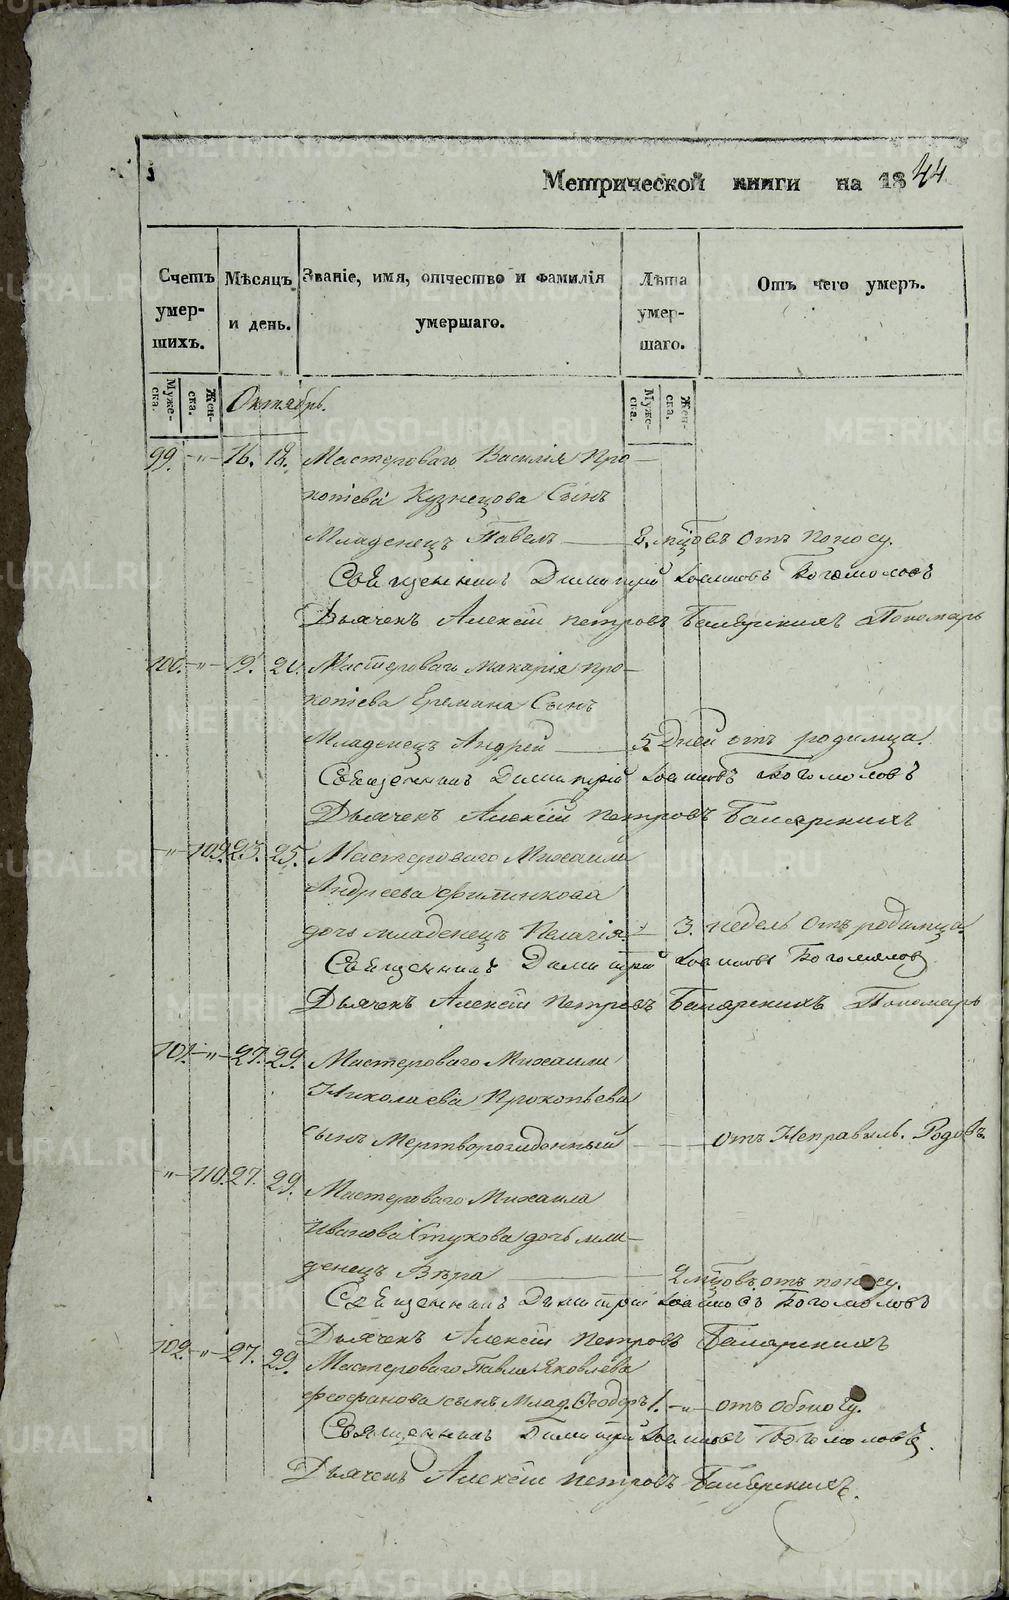 Метрической книги на 1844
Счетъ умер- шихъ.
Мѣсяцъ и день.
Званіе, имя, отчество и фамилія умершаго.
Лѣта умер- шаго.
Отъ чего умеръ.
Муже- ска.
Жен- ска.
Октябрь.
Муже- ска.
Жен- ска.
99. -„- 16. 18. Мастероваго Василія Про-
копіева Кузнецова Сынъ
Младенецъ Павелъ — 8. мцовъ отъ поносу.
Священникъ Димитрій Іоанновъ Богомоловъ
Дьячекъ Алексій Петровъ Пономарь
100. -„- 19. 20. Мастероваго Макарія Про-
копіева Еремина Сынъ
Младенецъ Андрей — 5 Дней отъ родимца.
Священникъ Димитрій Іоанновъ Богомоловъ
Дьячекъ Алексій Петровъ
-„- 109. 23. 25. Мастероваго Михаила
Андреева Филинкова
дочь младенецъ Пелагія — 3. недель отъ родимца.
Священникъ Димитрій Іоанновъ Богомоловъ
Дьячекъ Алексій Петровъ Пономарь
101. -„- 27. 29. Мастероваго Михаила
Николаева Прокопьева
сынъ Мертворожденный — — отъ Неправиль. Родовъ.
-„- 110. 27. 29. Мастероваго Михаила
Иванова Стукова дочь мла-
денецъ Вѣра — 2 мцовъ отъ поносу.
Священникъ Димитрій Іоанновъ Богомоловъ
Дьячекъ Алексій Петровъ
102. -„- 27. 29. Мастероваго Павла Яковлева
Феофанова сынъ Млад. Ѳеодоръ 1. -„- отъ
Священникъ Димитрій Іоанновъ Богомоловъ.
Дьячекъ Алексій Петровъ
METRIKI.GASO-URAL.RU